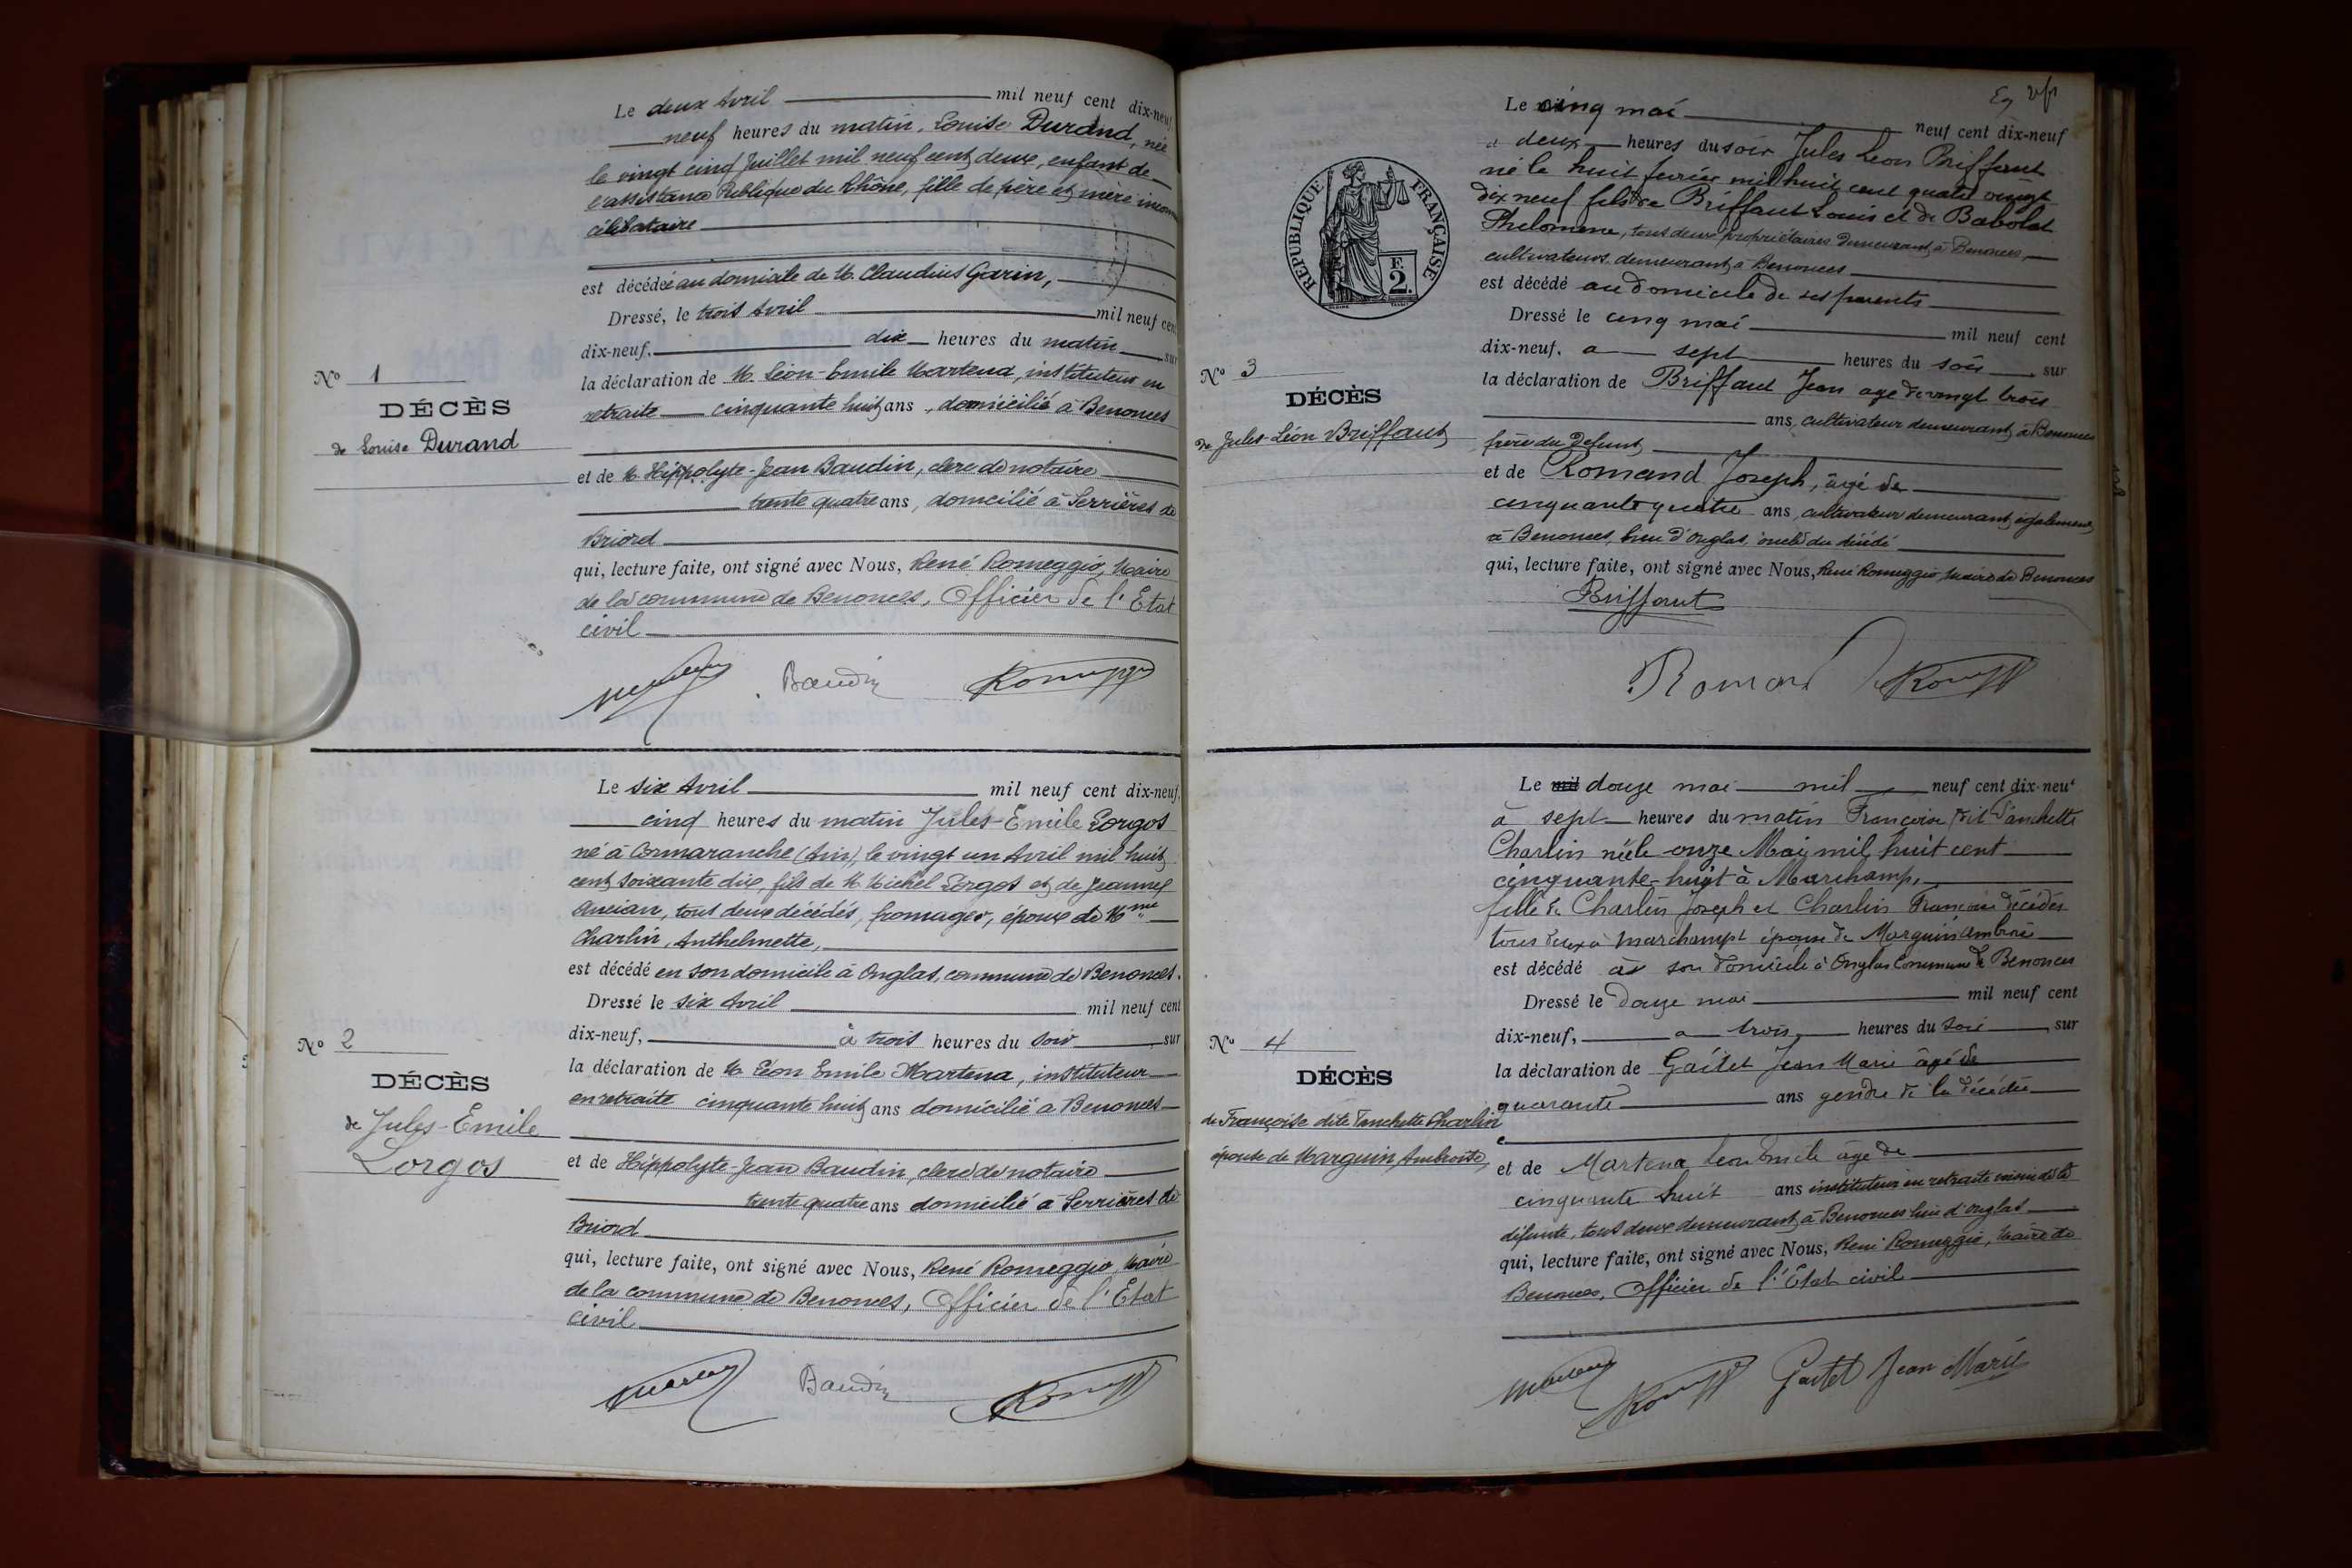 Le deux Avril mil neuf cent dix-neuf
neuf heures du matin, Louise Durand, née
le vingt cinq Juillet mil neuf cent deux, enfant de
l'assistance Publique du Rhône, fille de père et mère
célibataire
est décédée au domicile de M. Claudius Garin,
Dressé, le trois Avril mil neuf cent
dix-neuf, dix heures du matin sur
la déclaration de M. Léon-Emile Martena, instituteur en
retraite cinquante huit ans, domicilié à Benonces
et de M. Hippolyte-Jean Baudin, clerc de notaire
trente quatre ans, domicilié à Serrières de
Briord
qui, lecture faite, ont signé avec Nous, René Romeggio, Maire
de la commune de Benonces, Officier de l'Etat
civil
Baudin
No 1
DÉCÈS
de Louise Durand
Le six Avril mil neuf cent dix-neuf,
cinq heures du matin Jules-Emile Lorgos
né à Cormaranche (Ain), le vingt un Avril mil huit
cent soixante dix, fils de M. Michel Lorgos et de Jeanne
Ancian, tous deux décédés, fromager, époux de Mme
Charlin, Anthelmette,
est décédé en son domicile à Onglas, commune de Benonces.
Dressé le six Avril mil neuf cent
dix-neuf, à trois heures du soir sur
la déclaration de M. Léon Emile Martena, instituteur
en retraite cinquante huit ans domicilié à Benonces
et de Hippolyte-Jean Baudin, clerc de notaire
trente quatre ans domicilié à Serrières de
Briord
qui, lecture faite, ont signé avec Nous, René Romeggio, Maire
de la commune de Benonces, Officier de l'Etat
civil
Baudin
No 2
DÉCÈS
de Jules-Emile
Lorgos
RÉPUBLIQUE FRANÇAISE
F.
2.
Le cinq mai neuf cent dix-neuf
à deux heures du soir Jules Leon Briffaut
né le huit fevrier mil huit cent quatre vingt
dix neuf fils de Briffaut Louis et de Babolat
Phelomene, tous deux propriétaires demeurant à Benonces,
cultivateurs demeurant à Benonces
est décédé au domicile de ses parents
Dressé le cinq mai mil neuf cent
dix-neuf, a sept heures du soir sur
la déclaration de Briffaut Jean age de vingt trois
ans, cultivateur demeurant à Benonces
frère du défunt
et de Romand Joseph, âgé de
cinquante quatre ans, cultivateur demeurant également
à Benonces, lieu d'Onglas, oncle du décédé
qui, lecture faite, ont signé avec Nous, René Romeggio, Maire de Benonces
Briffaut
Romand
No 3
DÉCÈS
de Jules-Léon Briffaut
Le mil douze mai mil neuf cent dix-neuf
à sept heures du matin Françoise dit Fanchette
Charlin née le onze Mai mil huit cent
cinquante-huit à Marchamp,
fille de Charlin Joseph et Charlin Françoise décédés
tous deux à Marchampt épouse de Marguin Ambroise
est décédé à son domicile à Onglas Commune de Benonces
Dressé le douze mai mil neuf cent
dix-neuf, a trois heures du soir sur
la déclaration de Gaitet Jean Marie âgé de
quarante ans gendre de la décédée
et de Martena Leon Emile âgé de
cinquante huit ans instituteur en retraite voisin de la
défunte, tous deux demeurant à Benonces lieu d'Onglas
qui, lecture faite, ont signé avec Nous, René Romeggio, Maire de
Benonces, Officier de l'Etat civil
Gaitet Jean Marie
No 4
DÉCÈS
de Françoise dite Fanchette Charlin
épouse de Marguin Ambroise